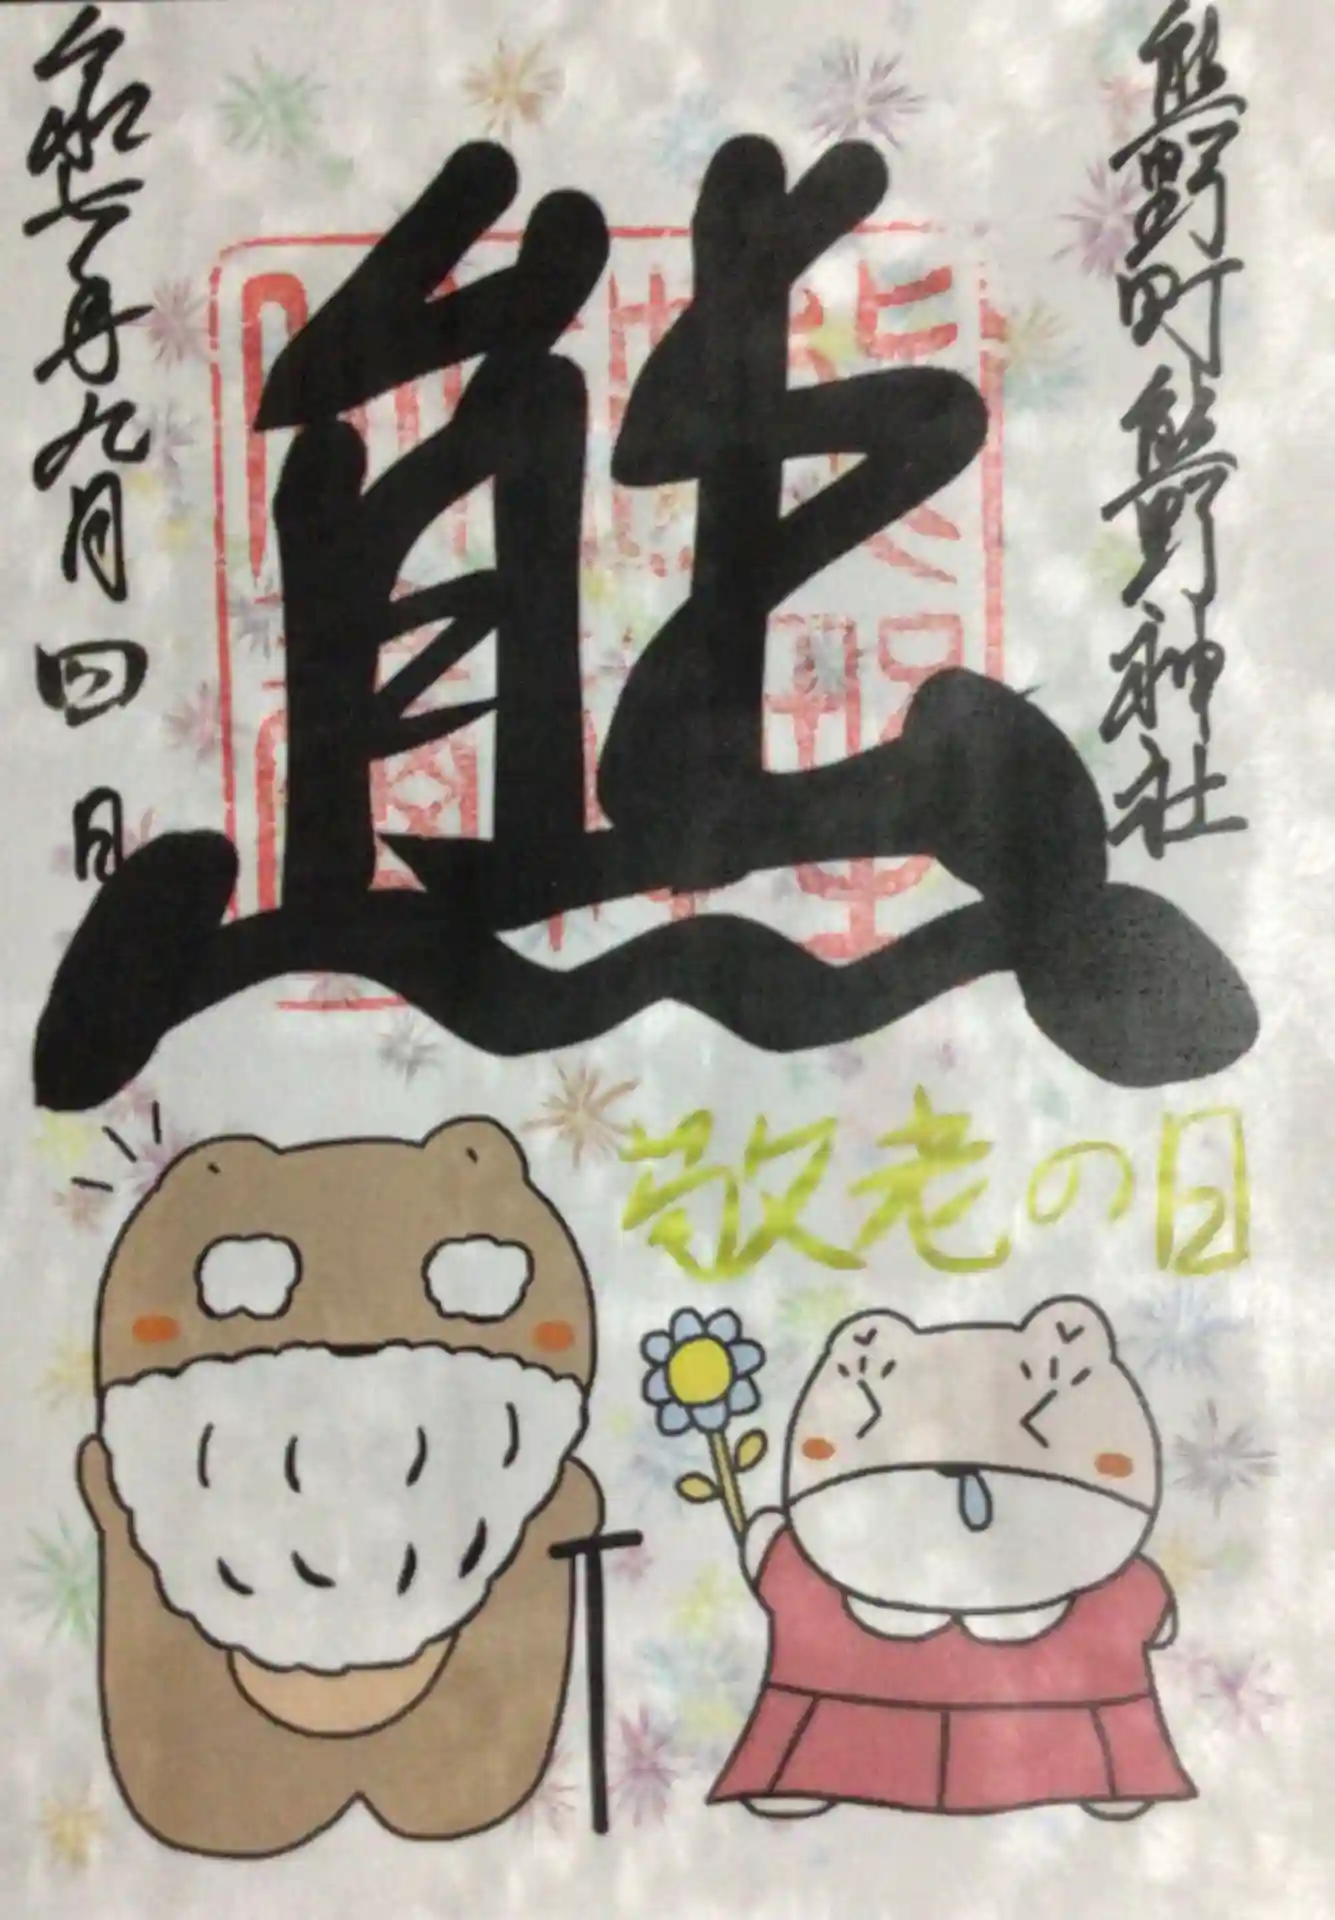 熊野町熊野神社
熊
令和七年九月四日
敬老の日